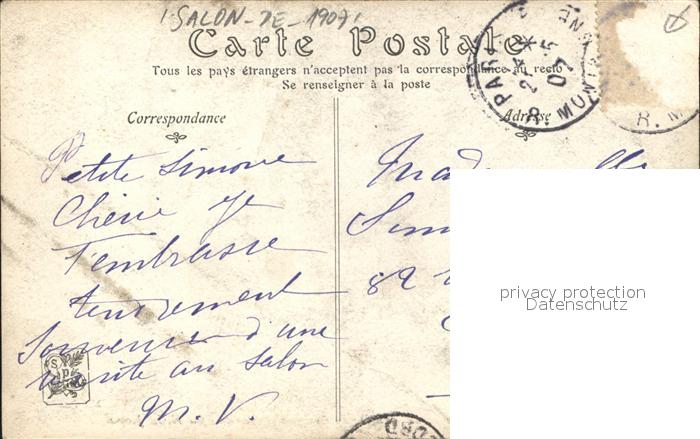 "SALON-DE-1907"
Carte Postale
Tous les pays étrangers n'acceptent pas la correspondance au recto
Se renseigner à la poste
Correspondance
Petite Simone
Chérie je
t'embrasse
tendrement
Souvenir d'une
visite au Salon
M. V.
Adresse
82
PARIS
07
R. MONT
R. M
privacy protection
Datenschutz